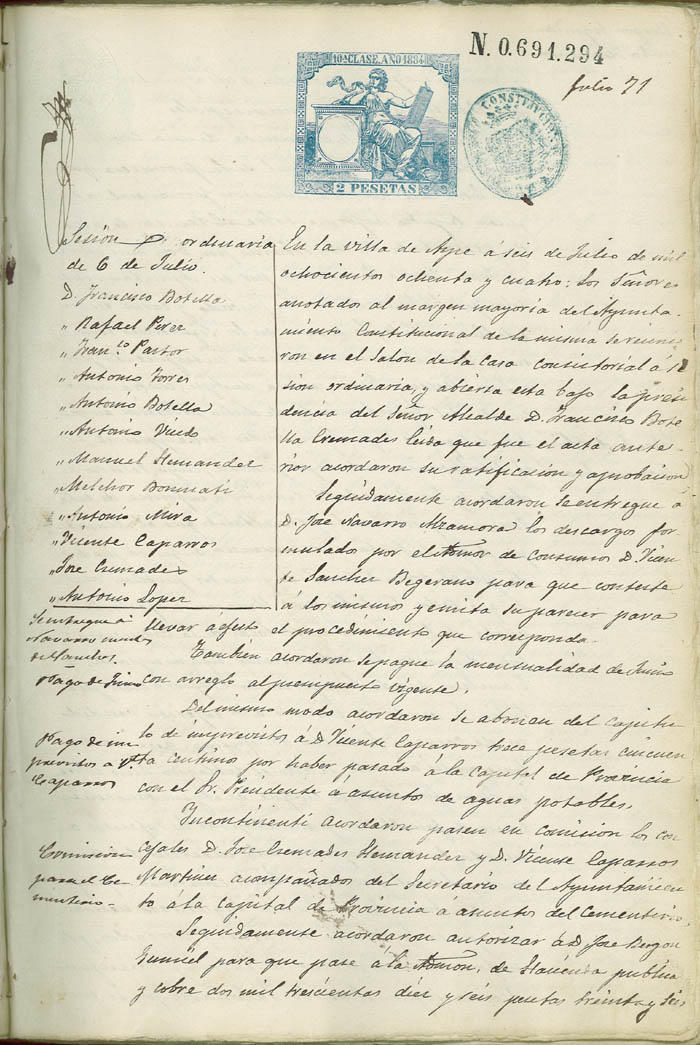 N. 0.691.294
10ª CLASE. AÑO 1884
2 PESETAS
Julio 71
CONSTITUCIONAL
Sesion ordinaria
de 6 de Julio.
D. Francisco Botella
" Rafael Perez
" Fran.co Pastor
" Antonio Torres
" Antonio Botella
" Antonio Vicedo
" Manuel Hernandez
" Melchor Bonmati
" Antonio Mira
" Vicente Caparros
" Jose Cremades
" Antonio Lopez
En la villa de Aspe á seis de Julio de mil
ochocientos ochenta y cuatro: los Señores
anotados al margen mayoria del Ayunta-
miento Constitucional de la misma se reunie-
ron en el Salon de la Casa consistorial á se
sion ordinaria, y abierta esta bajo la presi
dencia del Señor Alcalde D. Francisco Bote
lla Cremades leida que fue el acta ante-
rior acordaron su ratificacion y aprobacion
Seguidamente acordaron se entregue á
D. Jose Navarro Alzamora los descargos for-
mulados por el Admor de consumos D. Vicen
te Sanchez Begerano para que conteste
á los mismos y emita su parecer para
llevar á efecto el procedimiento que corresponda.
Tambien acordaron se pague la mensualidad de Junio
con arreglo al presupuesto vigente.
Del mismo modo acordaron se abonen del capitu
lo de imprevistos á D. Vicente Caparros trece pesetas cincuen
ta centimos por haber pasado á la Capital de Provincia
con el Sr. Presidente á asunto de aguas potables.
Incontinenti acordaron pasen en comision los con
cejales D. Jose Cremades Hernandez y D. Vicente Caparros
Martinez acompañados del Secretario del Ayuntamien
to á la capital de Provincia á asuntos del Cementerio.
Seguidamente acordaron autorizar á D. Jose Bergon
para que pase á la Admon. de Hacienda publica
y cobre dos mil trescientas diez y seis pesetas treinta y seis
Se entregue á
Navarro
Pago de Junio
Pago de im
previstos a Vte
Caparros
Comision
para el Ce
menterio.